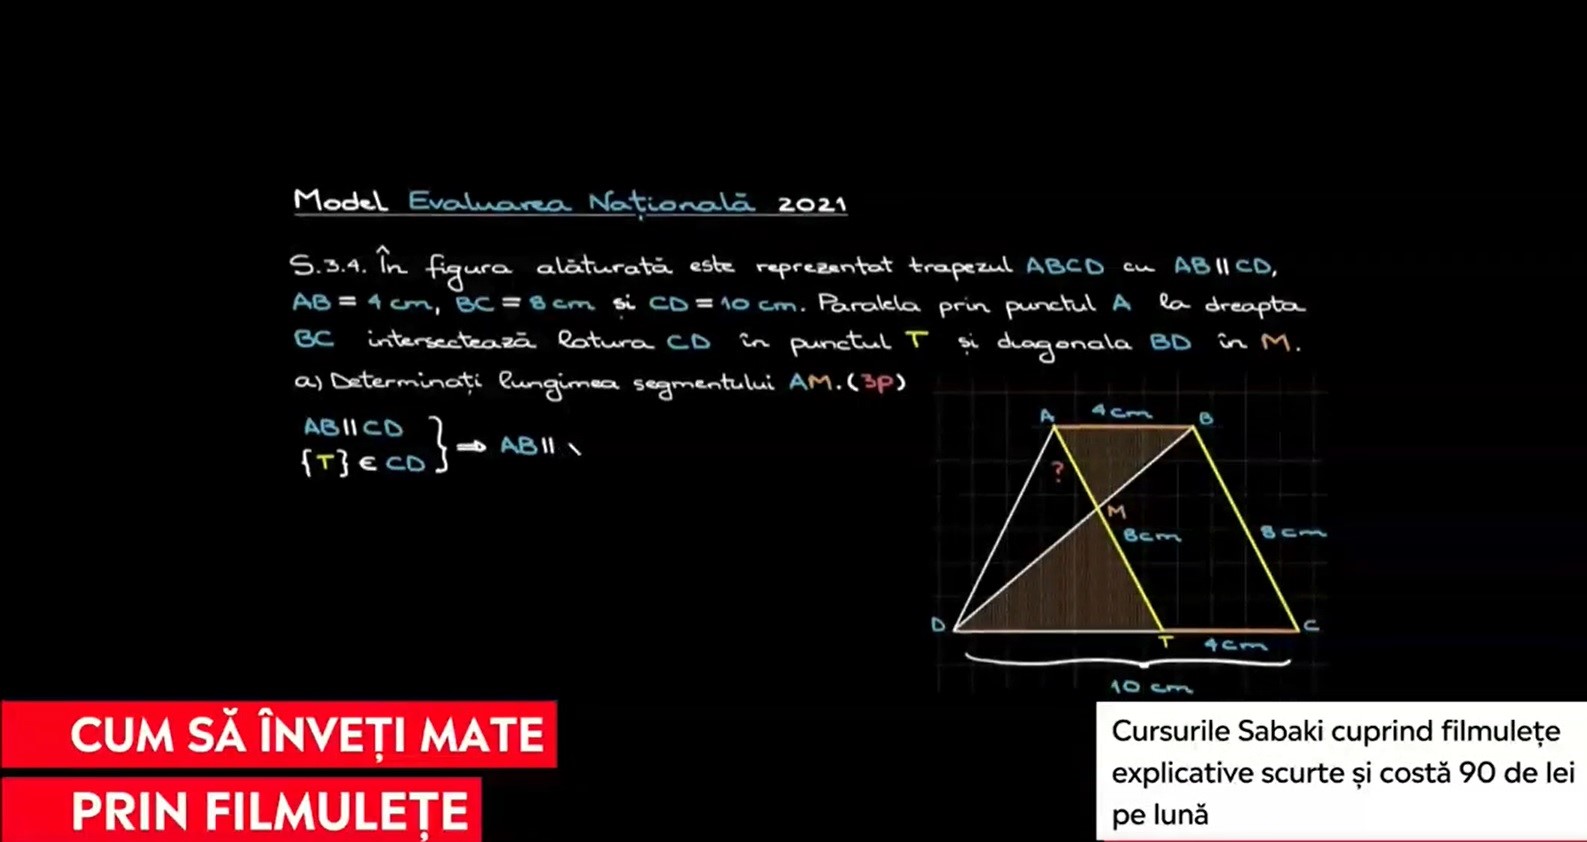 Model Evaluarea Națională 2021
S.3.4. În figura alăturată este reprezentat trapezul ABCD cu AB || CD,
AB = 4 cm, BC = 8 cm si CD = 10 cm. Paralela prin punctul A la dreapta
BC intersectează latura CD în punctul T și diagonala BD în M.
a) Determinați lungimea segmentului AM. (3p)
AB || CD
{T} ∈ CD
} ⇒ AB ||
A 4 cm B
?
M
8 cm
8 cm
D
T
4 cm
C
10 cm
CUM SĂ ÎNVEȚI MATE
PRIN FILMULEȚE
Cursurile Sabaki cuprind filmulețe
explicative scurte și costă 90 de lei
pe lună